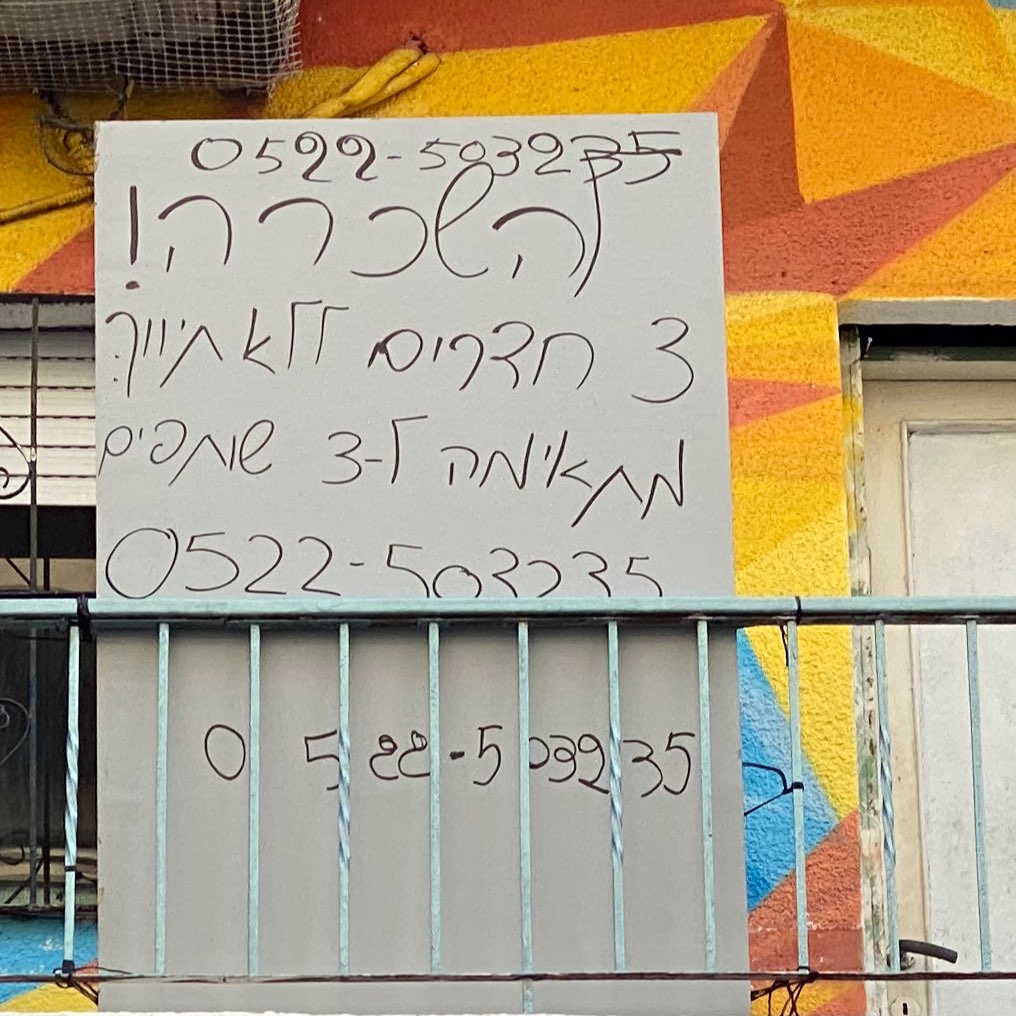 0522-503235
להשכרה!
3 חדרים ללא תיווך
מתאימה ל-3 שותפים
0522-503235
0522-503235